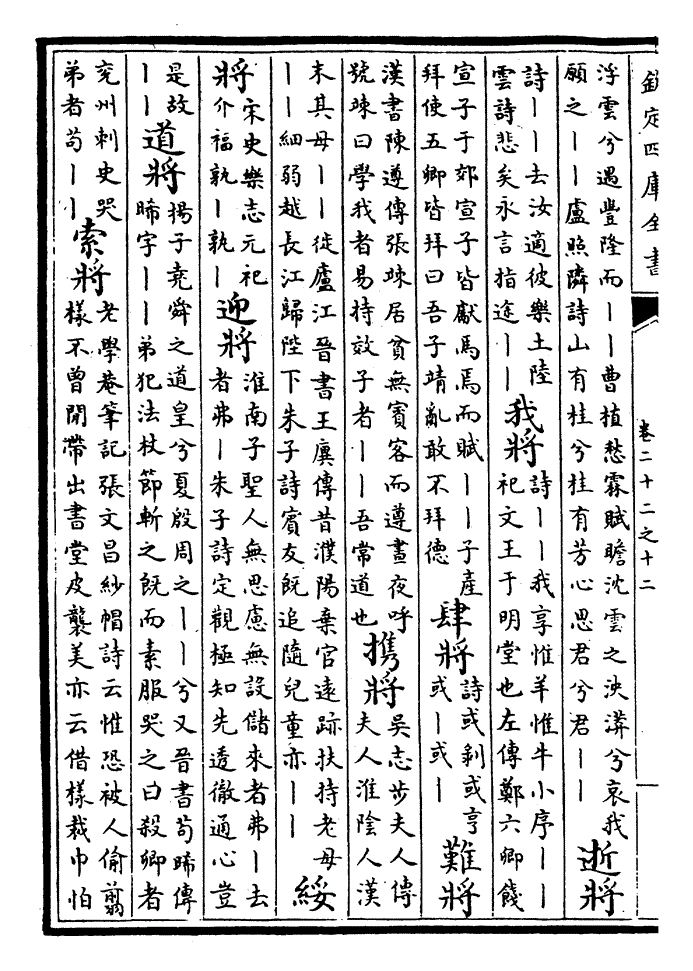 欽定四庫全書
卷二十二之十二
浮雲兮遇豐隆而丨丨曹植愁霖賦瞻沈雲之泱漭兮哀我
願之丨丨盧照隣詩山有桂兮桂有芳心思君兮君丨丨
逝將
詩丨丨去汝適彼樂土陸
雲詩悲矣永言指途丨丨
我將
詩丨丨我享惟羊惟牛小序丨丨
祀文王于明堂也左傳鄭六卿餞
宣子于郊宣子皆獻馬焉而賦丨丨子產
拜使五卿皆拜曰吾子靖亂敢不拜德
肆將
詩或剝或亨
或丨或丨
難將
漢書陳遵傳張竦居貧無賓客而遵晝夜呼
號竦曰學我者易持效子者丨丨吾常道也
携將
吳志步夫人傳
夫人淮陰人漢
末其母丨丨徙廬江晉書王廙傳昔濮陽棄官遠跡扶持老母
丨丨細弱越長江歸陛下朱子詩賓友既追隨兒童亦丨丨
綏
將
宋史樂志元祀
介福孰丨孰丨
迎將
淮南子聖人無思慮無設儲來者弗丨去
者弗丨朱子詩定觀極知先透徹通心豈
是故
丨丨
道將
揚子堯舜之道皇兮夏殷周之丨丨兮又晉書茍晞傳
晞字丨丨弟犯法杖節斬之既而素服哭之曰殺卿者
兖州刺史哭
弟者茍丨丨
索將
老學菴筆記張文昌紗帽詩云惟恐被人偷翦
樣不曾閒帶出書堂皮襲美亦云借樣裁巾怕